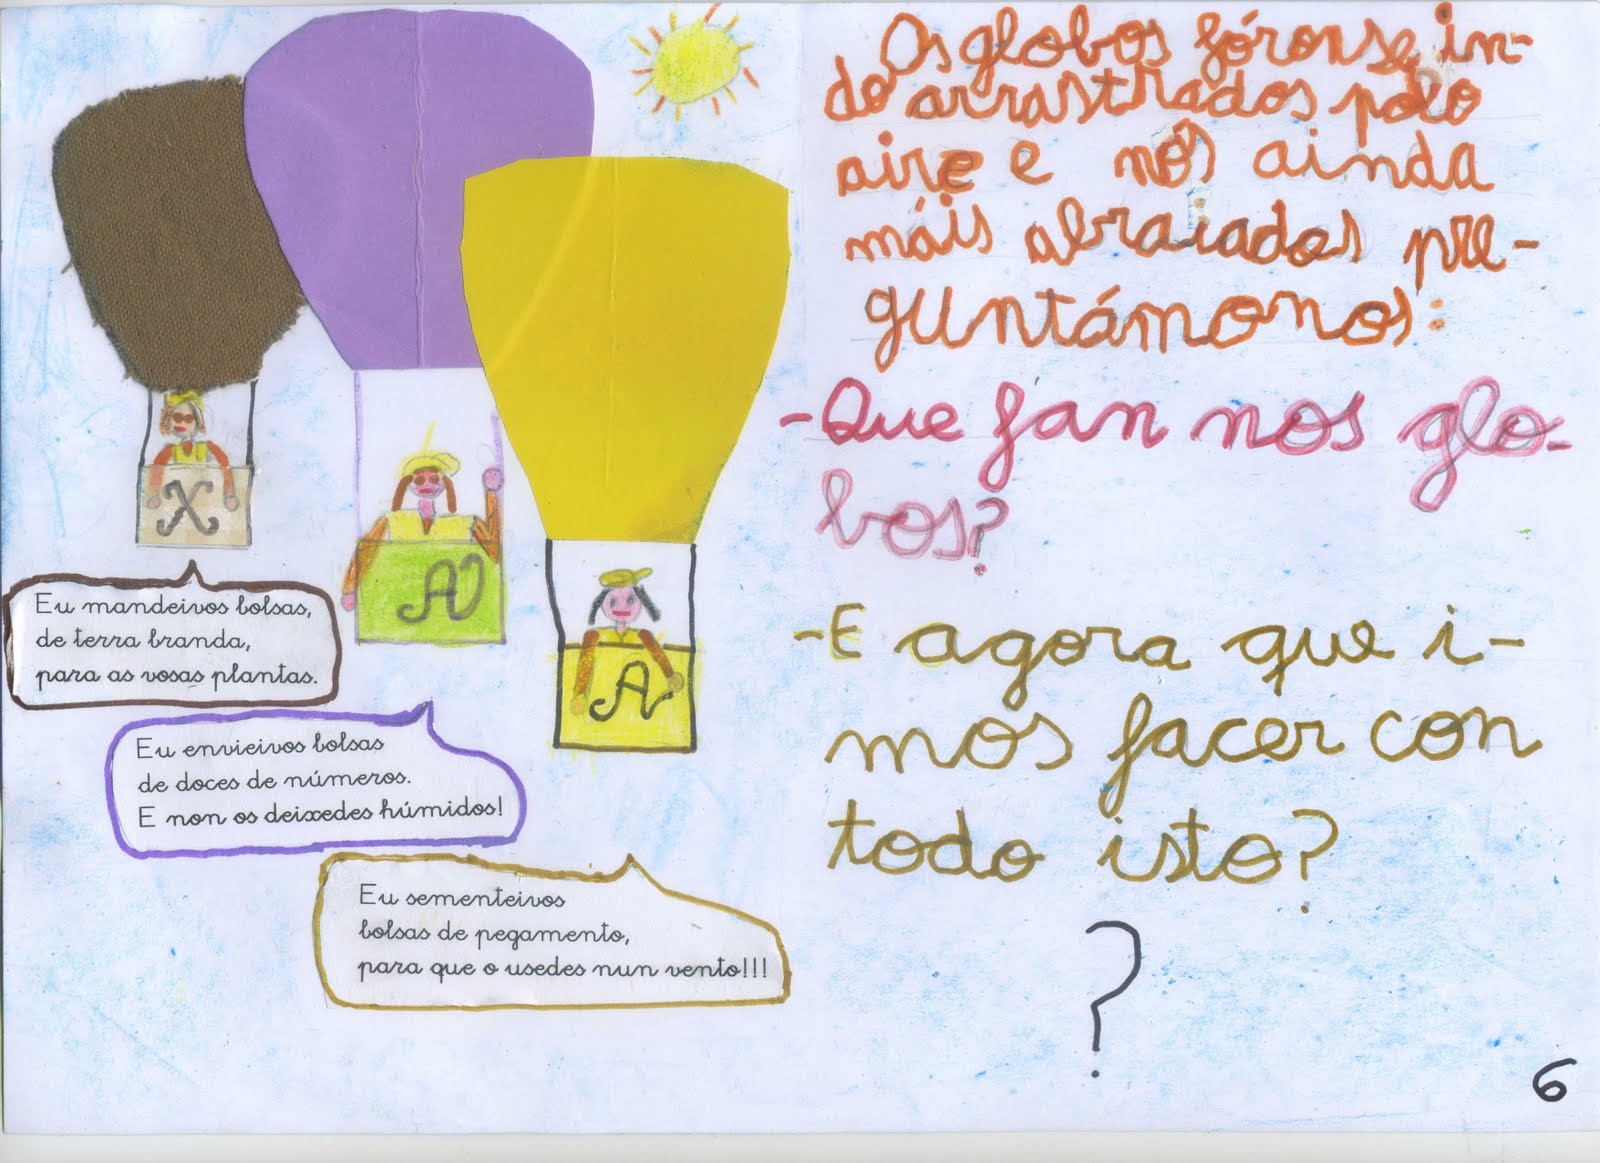 X
AV
A
Eu mandeivos bolsas,
de terra branda,
para as vosas plantas.
Eu envieivos bolsas
de doces de números.
E non os deixedes húmidos!
Eu sementeivos
bolsas de pegamento,
para que o usedes nun vento!!!
Os globos fóronse in-
do arrastrados polo
aire e nós ainda
máis abraiados pre-
guntámonos:
-Que fan nos glo-
bos?
-E agora que i-
mos facer con
todo isto?
?
6